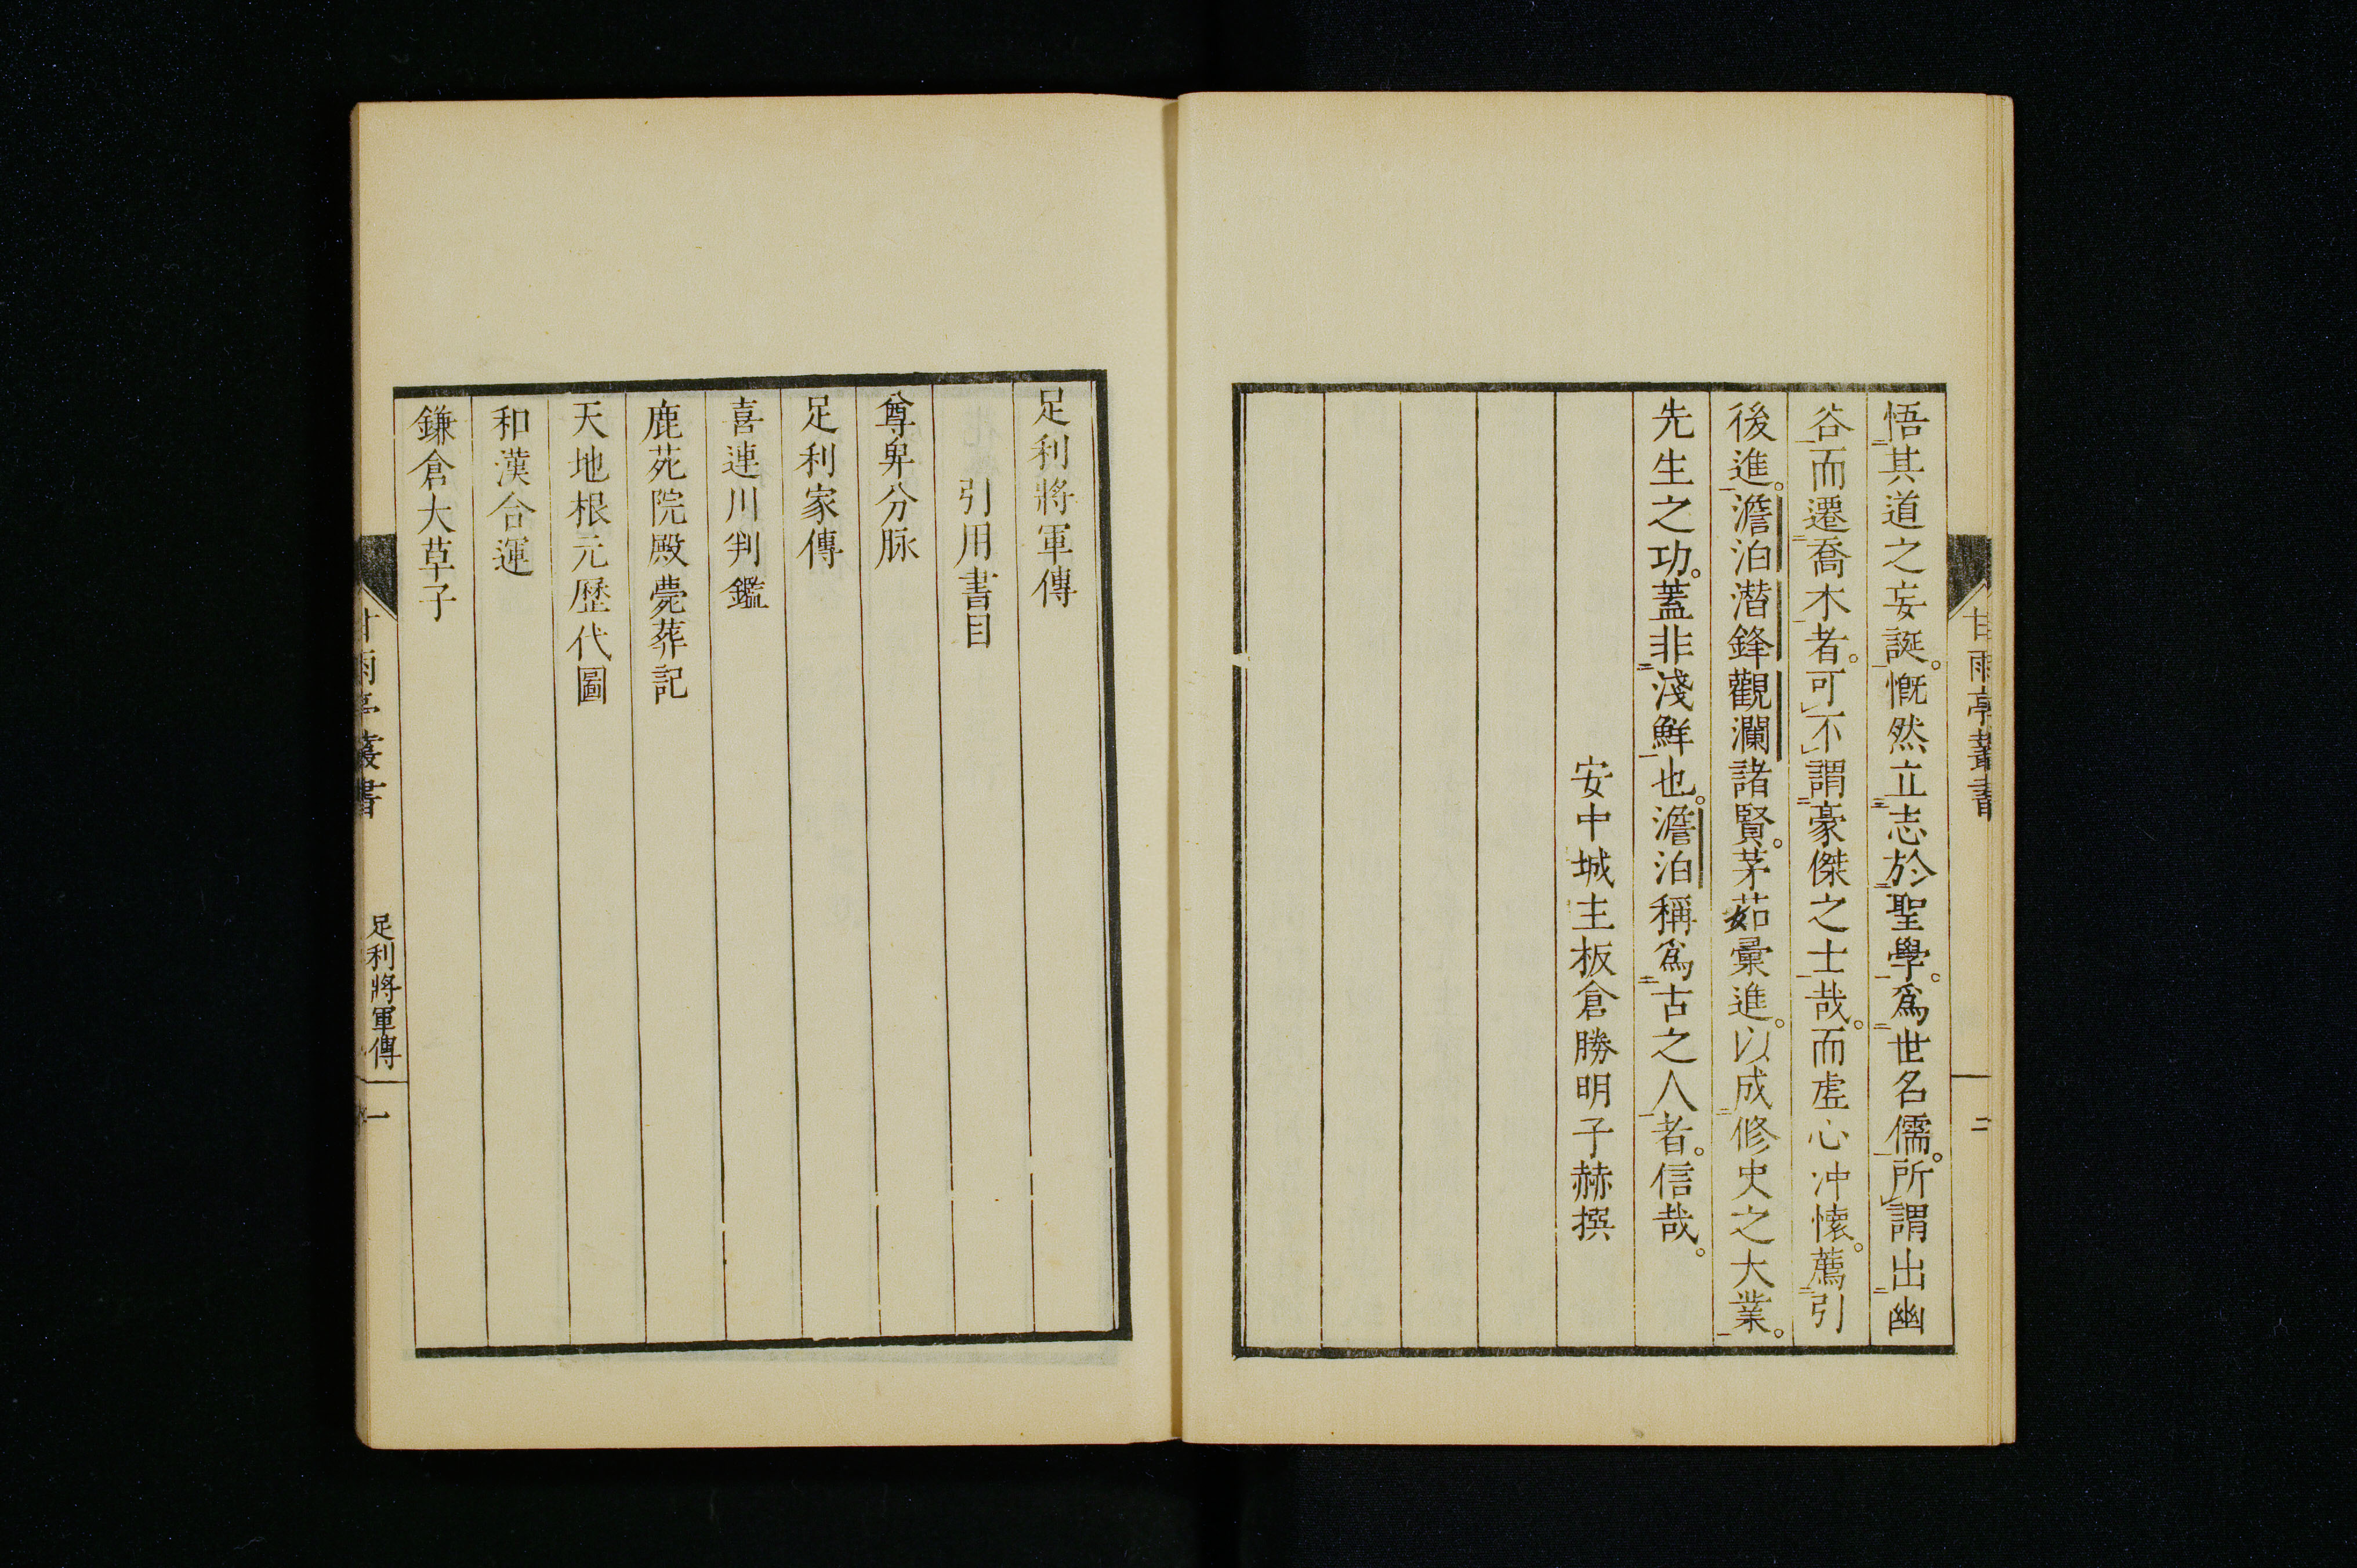 悟其道之妄誕。慨然立志於聖學。爲世名儒。所謂出幽
谷而遷喬木者。可不謂豪傑之士哉。而虛心冲懷。薦引
後進。澹泊潜鋒觀瀾諸賢。茅茹彙進。以成修史之大業。
先生之功。蓋非淺鮮也。澹泊稱爲古之人者。信哉。
安中城主板倉勝明子赫撰
甘雨亭叢書
二
足利將軍傳
引用書目
尊卑分脉
足利家傳
喜連川判鑑
鹿苑院殿薨葬記
天地根元歷代圖
和漢合運
鎌倉大草子
甘雨亭叢書
足利將軍傳
一